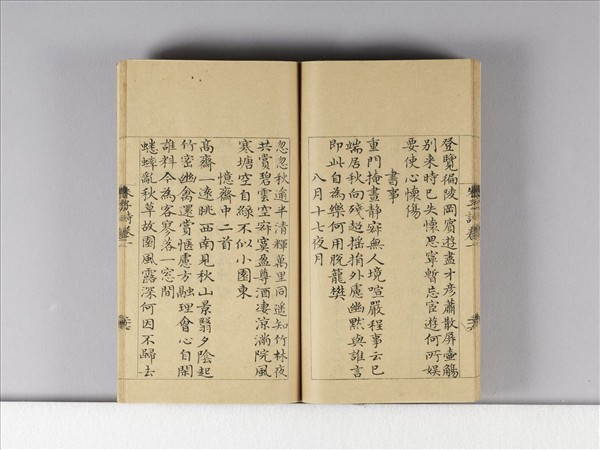 登覽徧陵岡賓遊盡才彥蕭散屏壺觴
别来時已失懷思寧暫忘宦遊何所娱
要使心懷傷
書事
重門掩晝静寂無人境喧嚴程事云已
端居秋向殘超摇捐外慮幽默與誰言
即此自為樂何用脱籠樊
八月十七夜月
忽忽秋逾半清輝萬里同遥知竹林夜
共賞碧雲空寂寞盈尊酒凄涼滿院風
寒塘空自緑不似小園東
憶齋中二首
高齋一遠眺西南見秋山景翳夕陰起
竹密幽禽還賞愜慮方融理會心自閑
誰料今為客寥落一窓間
蟋蟀亂秋草故園風露深何因不歸去